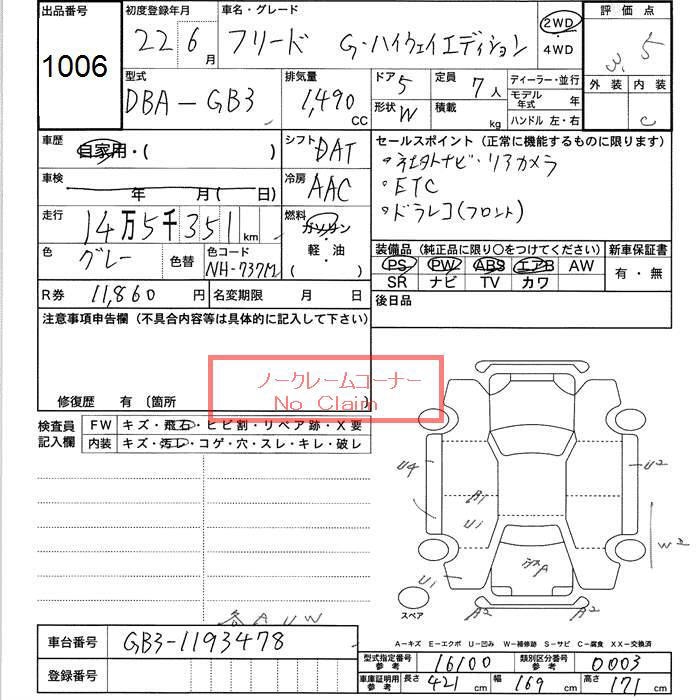 出品番号 初度登録年月 車名・グレード 評価点
1006 22 6月 フリード G・ハイウェイエディション 2WD ・ 4WD 3.5
型式 排気量 ドア 5 定員 7人 ディーラー・並行 外装 内装
DBA-GB3 1,490 CC 形状 W 積載 kg モデル年式 年 C
ハンドル 左・右
車歴 シフト セールスポイント (正常に機能するものに限ります)
自家用・( ) DAT ・社外ナビ・リアカメラ
車検 年 月 ( 日) 冷房 AAC ・ETC
走行 14万5千351km 燃料 ガソリン ・ドラレコ(フロント)
色 グレー 色替 色コード NH-737M 軽・油 ( )
装備品 (純正品に限り〇をつけてください) 新車保証書
PS PW ABS エアB AW 有・無
SR ナビ TV カワ
R券 11,860 円 名変期限 月 日 後日品
注意事項申告欄 (不具合内容等は具体的に記入して下さい)
ノークレームコーナー
No Claim
修復歴 有 〔箇所
検査員記入欄 FW キズ・飛石・ヒビ割・リペア跡・X要
内装 キズ・汚レ・コゲ・穴・スレ・キレ・破レ
U4 U2
A1
U1
W2
U1
スペア A2 A2
各AUW
A-キズ E-エクボ U-凹み W-補修跡 S-サビ C-腐食 XX-交換済
車台番号 GB3-1193478
型式指定番号 参考 16100 類別区分番号 参考 0003
登録番号 車庫証明用 参考 長さ 421 cm 幅 169 cm 高さ 171 cm